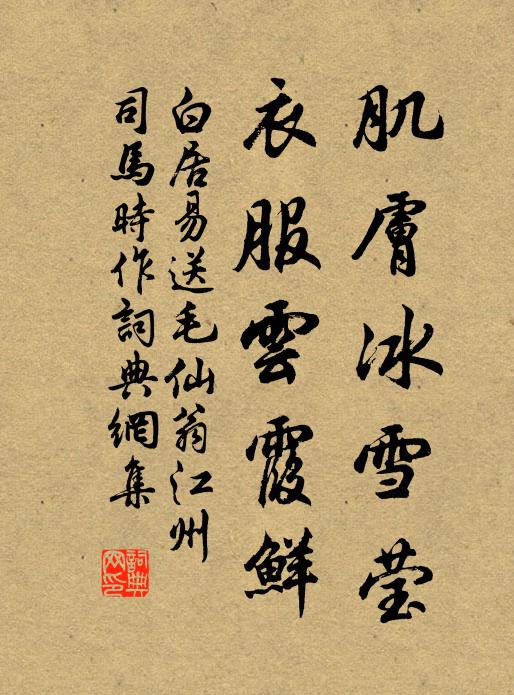 肌膚冰雪瑩
衣服雲霞鮮
白居易送毛仙翁江州
司馬時作詞典網集
詞典網印